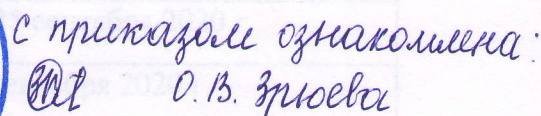 с приказом ознакомлена:
О.В. Зрюева